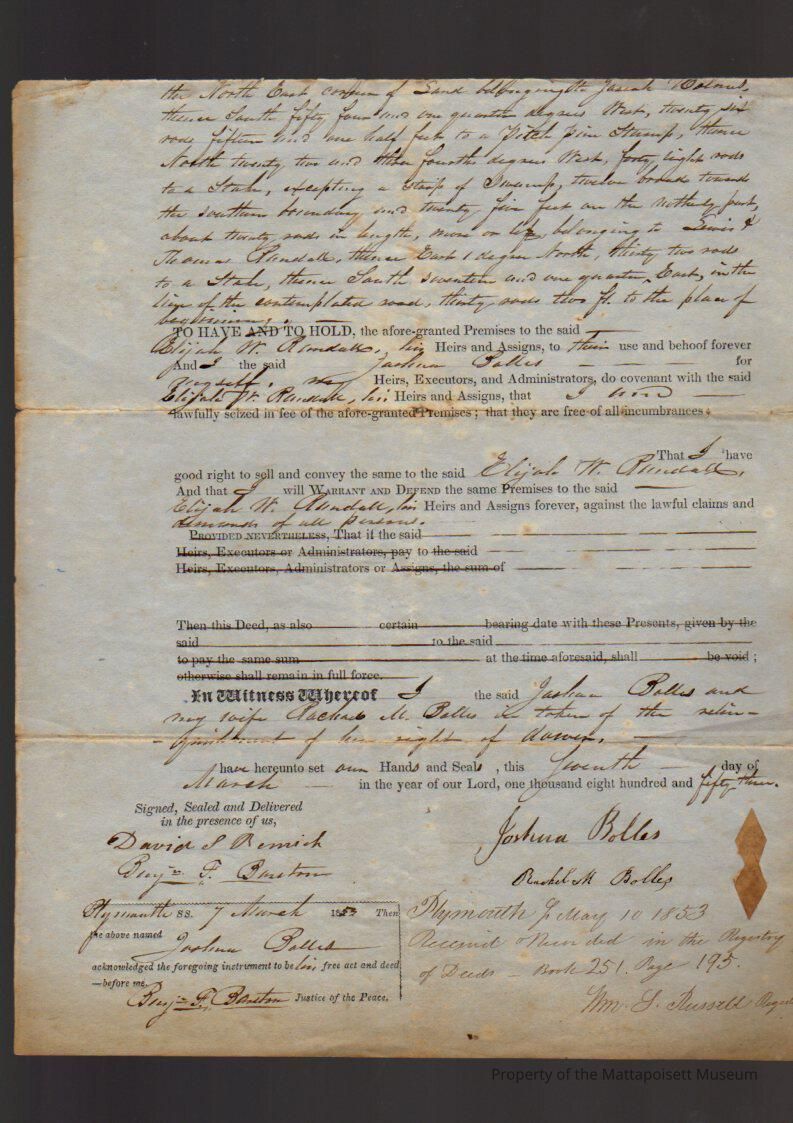 the North East corner of Land belonging to Josiah Holmes,
thence South fifty four and one quarter degrees West, twenty six
rods fifteen and one half feet to a Pitch pine Stump, thence
North twenty two and three fourth degrees West, forty eight rods
to a Stake, excepting a strip of Swamp, twelve broad towards
the southern boundary and twenty five feet on the northerly part,
about twenty rods in length, more or less, belonging to Lewis &
Thomas Randall, thence East 1 degree North, thirty two rods
to a Stake, thence South seventeen and one quarter East, in the
line of the contemplated road, thirty rods two ft. to the place of
beginning.
TO HAVE AND TO HOLD, the afore-granted Premises to the said
Elijah W. Randall, his Heirs and Assigns, to their use and behoof forever
And I the said Joshua Bolles for
myself, my Heirs, Executors, and Administrators, do covenant with the said
Elijah W. Randall, his Heirs and Assigns, that I am
lawfully seized in fee of the afore-granted Premises; that they are free of all incumbrances;
That I have
good right to sell and convey the same to the said Elijah W. Randall,
And that I will WARRANT AND DEFEND the same Premises to the said
Elijah W. Randall, his Heirs and Assigns forever, against the lawful claims and
demands of all persons.
PROVIDED NEVERTHELESS, That if the said
Heirs, Executors or Administrators, pay to the said
Heirs, Executors, Administrators or Assigns, the sum of
Then this Deed, as also certain bearing date with these Presents, given by the
said to the said
to pay the same sum at the time aforesaid, shall be void;
otherwise shall remain in full force.
In Witness Whereof I the said Joshua Bolles and
my wife Rachel M. Bolles in token of the relin-
-quishment of her right of dower,
have hereunto set our Hands and Seals, this Seventh day of
March in the year of our Lord, one thousand eight hundred and fifty three.
Signed, Sealed and Delivered
in the presence of us,
David S Remick
Benj=n F. Barstow
Joshua Bolles
Rachel M Bolles
Plymouth SS. 7 March 1853 Then
the above named
Joshua Bolles
acknowledged the foregoing instrument to be his free act and deed
—before me,
Benj=n F. Barstow Justice of the Peace.
Plymouth ss May 10 1853
Received & Recorded in the Registry
of Deeds - Book 251. Page 195.
Wm. S. Russell
Property of the Mattapoisett Museum